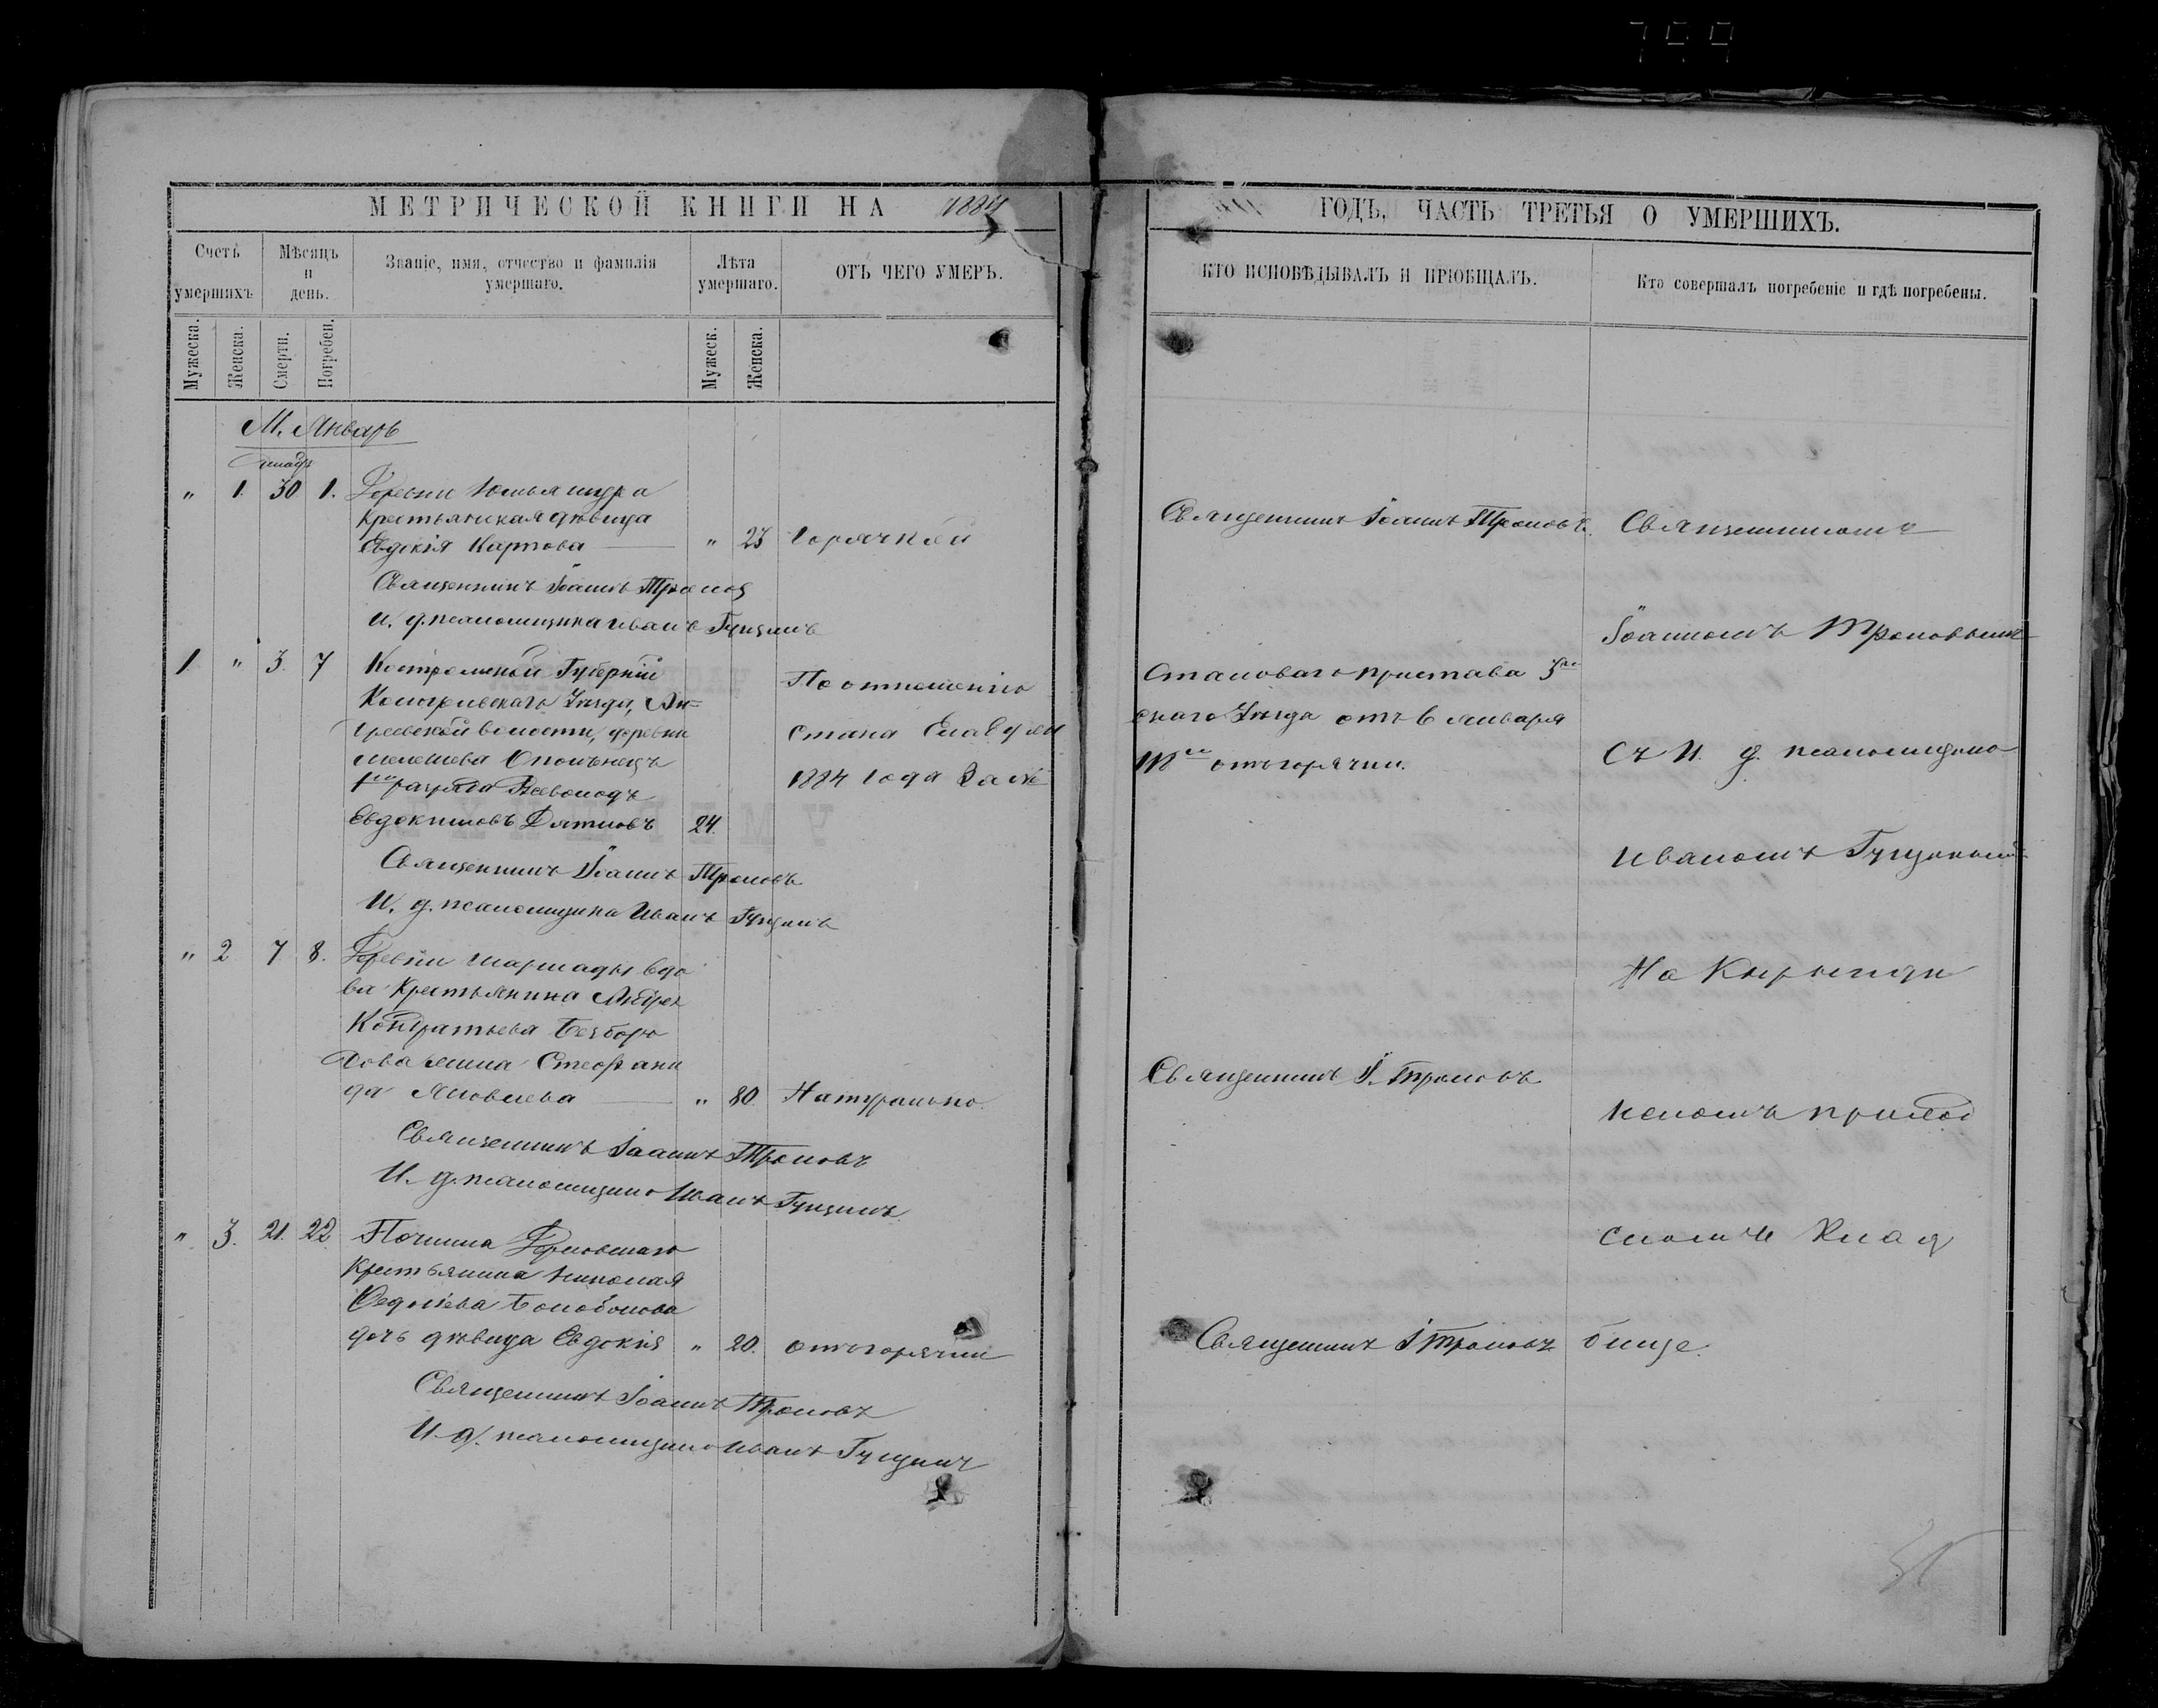 МЕТРИЧЕСКОЙ КНИГИ НА 1884
Счетъ умершихъ
Мѣсяцъ и день.
Званіе, имя, отчество и фамилія умершаго.
Лѣта умершаго.
ОТЪ ЧЕГО УМЕРЪ.
Мужеска.
Женска.
Смерти.
Погребен.
Мужеск.
Женска.
М. Январь
Декабр
" 1. 30 1. Деревни
крестьянская дѣвица
Евдокія Карпова " 23 горячкой
Священникъ Іоаннъ Троновъ
И. д. псаломщика Иванъ Гущинъ
1 " 3. 7 Костромской Губерніи
Уѣзда, Ан-
волости, деревни
Ополченецъ
разряда Всеволодъ
Евдокимовъ Дятловъ 24.
По отношенію
стана
1884 года за №
Священникъ Іоаннъ Троновъ
И. д. псаломщика Иванъ Гущинъ
" 2 7 8. Деревни вдо
ва Крестьянина Андрея
Кондратьева Безборо
дова жена Стефани
да Яковлева " 80. Натурально.
Священникъ Іоаннъ Троновъ
И. д. псаломщика Иванъ Гущинъ
" 3. 21. 22 Починка
Крестьянина Николая
Болобонова
дочь дѣвица Евдокія " 20. отъ горячки
Священникъ Іоаннъ Троновъ
И. д. псаломщика Иванъ Гущинъ
ГОДЪ, ЧАСТЬ ТРЕТЬЯ О УМЕРШИХЪ.
КТО ИСПОВѢДЫВАЛЪ И ПРІОБЩАЛЪ.
Кто совершалъ погребеніе и гдѣ погребены.
Священникъ Іоаннъ Троновъ.
Становаго пристава 3го
скаго Уѣзда отъ 6 января
отъ горячки.
Священникъ І. Троновъ
Священникъ І Троновъ
Священникомъ
Іоанномъ Троновымъ
съ И. д. псаломщика
Иваномъ Гущинымъ
На
скомъ приход
скомъ клад
бище.